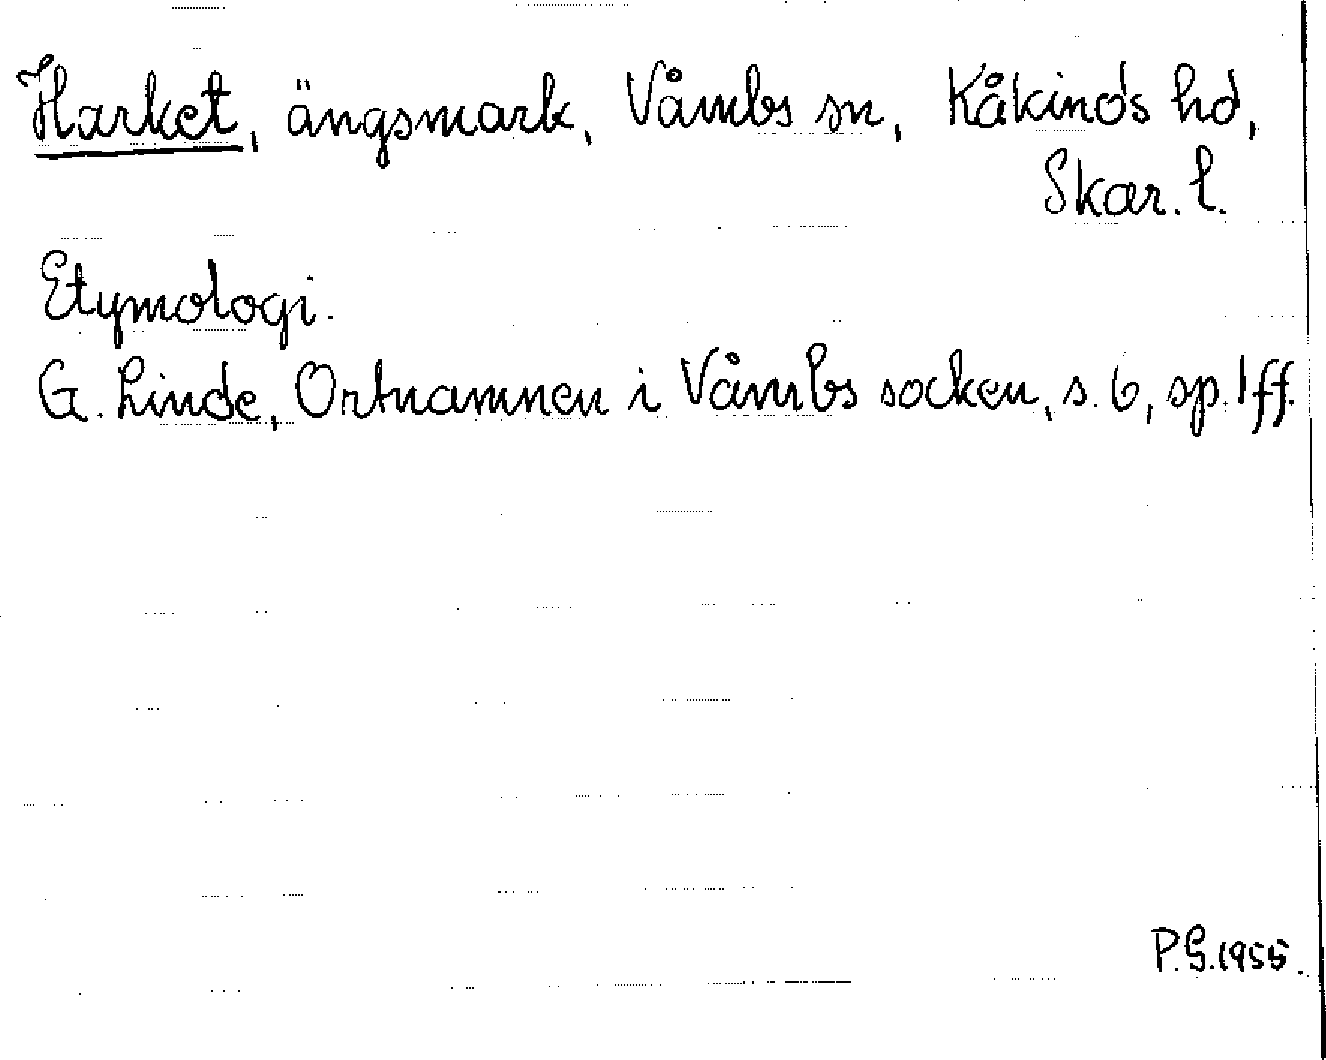 Harket, ängsmark, Våmbs sn, Kåkinds hd,
Skar. l.
Etymologi.
G. Linde, Ortnamnen i Våmbs socken, s. 6, sp. 1 ff.
P.G. 1955.